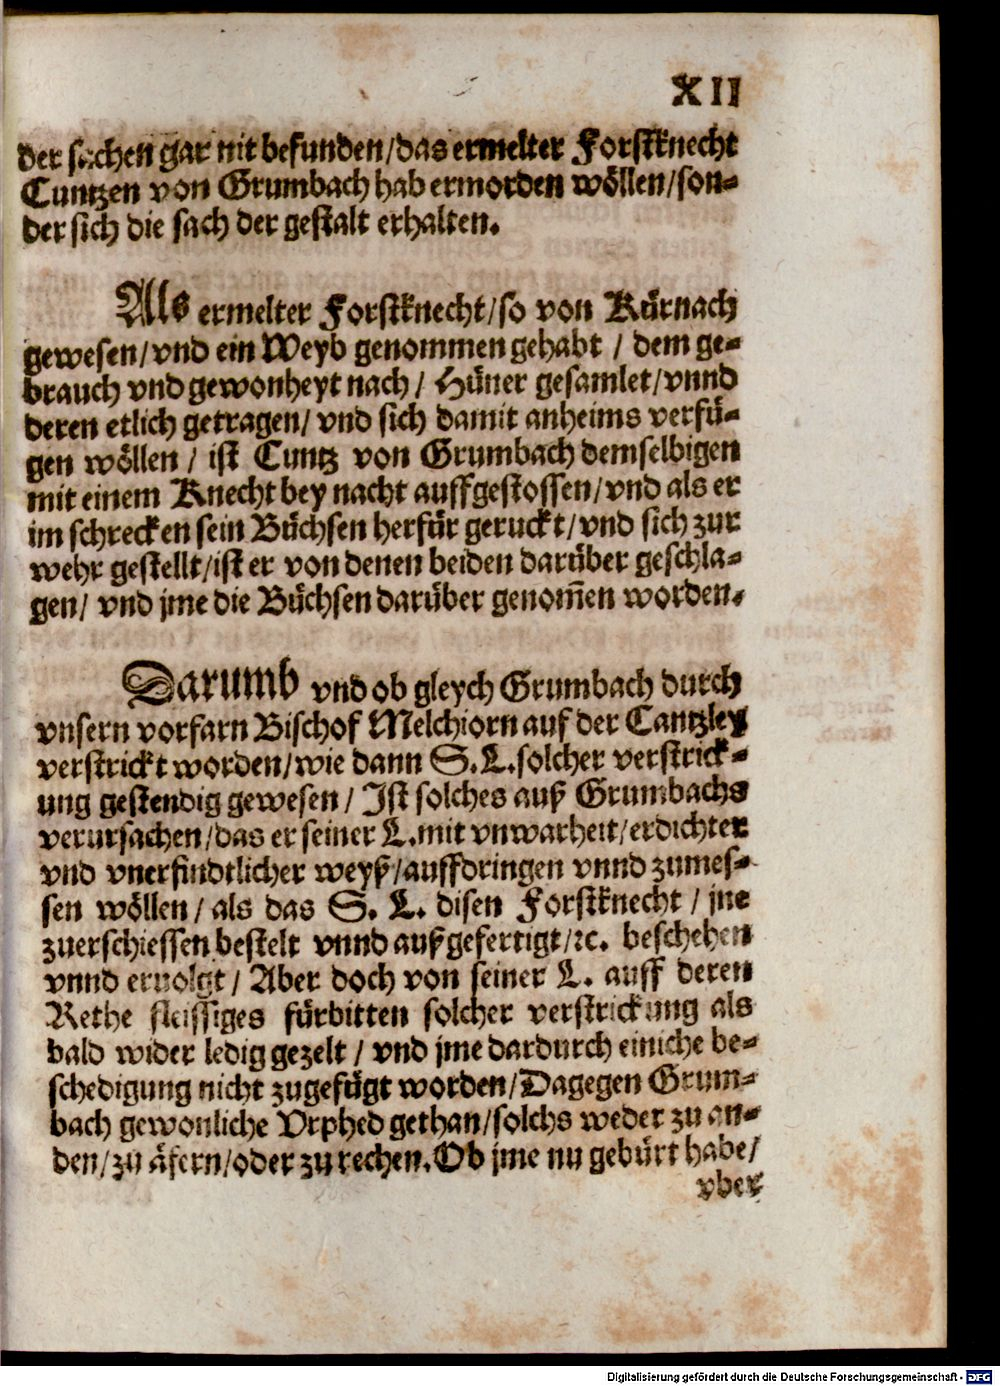 XII
der sachen gar nit befunden/das ermelter Forstknecht
Cuntzen von Grumbach hab ermorden wöllen/son-
der sich die sach der gestalt erhalten.
Als ermelter Forstknecht/so von Kürnach
gewesen/vnd ein Weyb genommen gehabt / dem ge-
brauch vnd gewonheyt nach / Hüner gesamlet/vnnd
deren etlich getragen/ vnd sich damit anheims verfü-
gen wöllen / ist Cuntz von Grumbach demselbigen
mit einem Knecht bey nacht auffgestossen/vnd als er
im schrecken sein Büchsen herfür geruckt/vnd sich zur
wehr gestellt/ist er von denen beiden darüber geschla-
gen/ vnd jme die Büchsen darüber genom̃en worden.
Darumb vnd ob gleych Grumbach durch
vnsern vorfarn Bischof Melchiorn auf der Cantzley
verstrickt worden/wie dann S.L.solcher verstrick-
ung gestendig gewesen / Ist solches auß Grumbachs
verursachen/das er seiner L.mit vnwarheit/erdichter
vnd vnerfindtlicher weyß/auffdringen vnnd zumes-
sen wöllen / als das S. L. disen Forstknecht / jne
zuerschiessen bestelt vnnd außgefertigt/ꝛc. beschehen
vnnd eruolgt / Aber doch von seiner L. auff deren
Rethe fleissiges fürbitten solcher verstrickung als
bald wider ledig gezelt / vnd jme dardurch einiche be-
schedigung nicht zugefügt worden/Dagegen Grum-
bach gewonliche Vrphed gethan/solchs weder zu an-
den/zu äfern/oder zu rechen.Ob jme nu gebürt habe/
vber
Digitalisierung gefördert durch die Deutsche Forschungsgemeinschaft - DFG